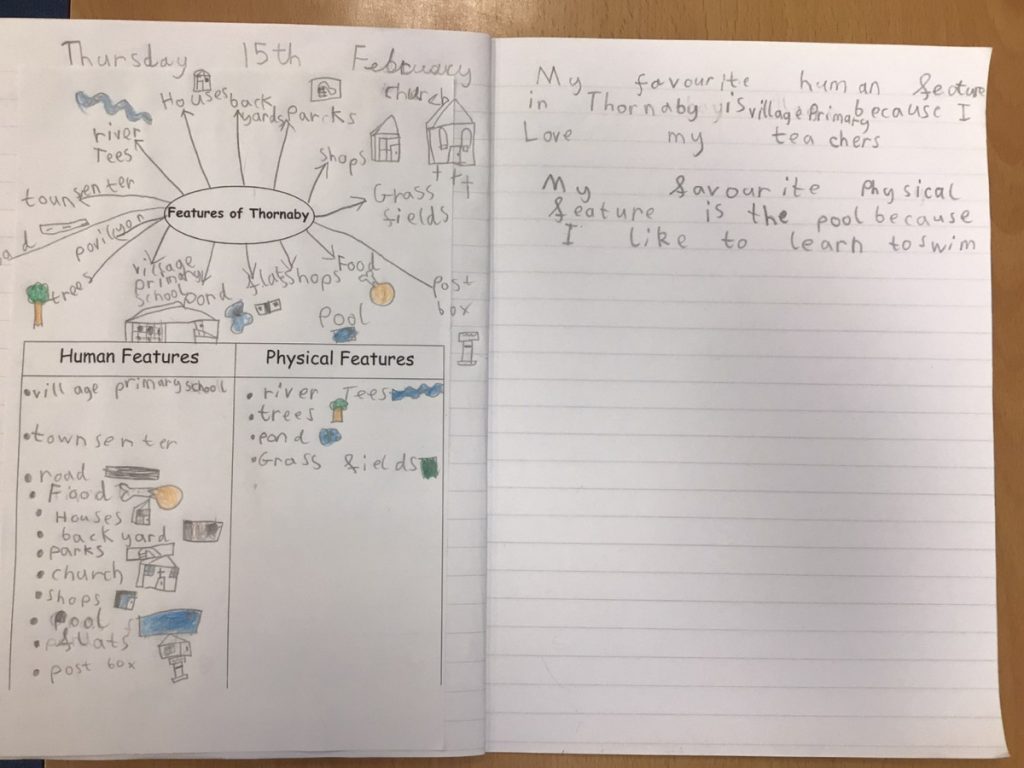 Thursday 15th February
Houses
back yards
Parcks
church
river Tees
shops
town senter
Features of Thornaby
Grass fields
povilyon
trees
village primary school
pond
flats
shops
Food
post box
Pool
Human Features
Physical Features
•village primary school
•town senter
•road
•Food
•Houses
•back yard
•parks
•church
•shops
•Pool
•flats
•post box
•river Tees
•trees
•pond
•Grass fields
My favourite human feature
in Thornaby is village Primary because I
Love my teachers
My favourite Physical
feature is the pool because
I like to learn to swim